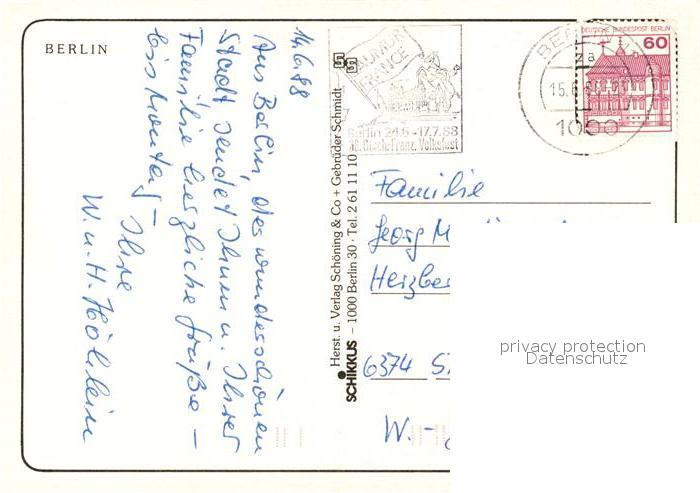 BERLIN
14.6.88
Aus Berlin, der wunderschönen
Stadt sendet Ihnen u. Ihrer
Familie herzliche Grüße –
bis Montag –
Ihre
W. u. H. Höhlein
Herst. u. Verlag Schöning & Co + Gebrüder Schmidt
SCHIKKUS – 1000 Berlin 30 · Tel. 2 61 11 10
BONJOUR
FRANCE
Berlin 24.6.-17.7.88
Dtsch-Franz. Volksfest
BERLIN
za
1000
DEUTSCHE BUNDESPOST BERLIN
60
Familie
Georg M
Herzber
6374 S
W.-
privacy protection
Datenschutz